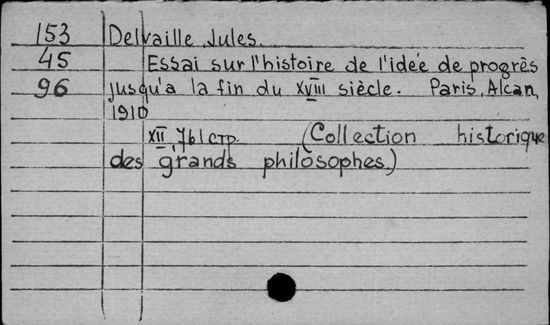 153 Delvaille Jules.
45 Essai sur l'histoire de l'idée de progrès
96 jusqu'a la fin du XVIII siècle. Paris, Alcan,
1910
XII, 761 стр. (Collection historique
des grands philosophes)